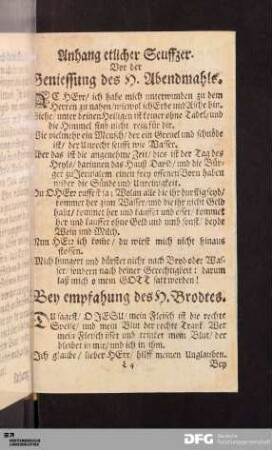 Anhang etlicher Seuffzer.
Vor der
Geniessung des H. Abendmahls.
ACh HErr/ ich habe mich unterwunden zu dem
HErren zu nahen/ wiewol ich Erde und Asche bin.
Siehe/ unter deinen Heiligen ist keiner ohne Tadel/ und
die Himmel sind nicht rein für dir.
Wie vielmehr ein Mensch/ der ein Greuel und schnöde
ist/ der Unrecht seufft wie Wasser.
Aber das ist die angenehme Zeit/ dies ist der Tag des
Heyls/ darinnen das Hauß David/ und die Bür-
ger zu Jerusalem einen frey offenen Born haben
wider die Sünde und Unreinigkeit.
Du O HErr ruffest ja: Wolan alle die ihr durstig seyd/
kommet her zum Wasser/ und die ihr nicht Geld
habt/ kommet her und kauffet und esset/ kommet
her und kauffet ohne Geld und umb sonst/ beyde
Wein und Milch.
Nun HErr ich komme/ du wirst mich nicht hinaus
stossen.
Mich hungert und dürstet nicht nach Brod oder Was-
ser/ sondern nach deiner Gerechtigkeit: darum
laß mich o mein GOTT satt werden!
Bey empfahung des H. Brodtes.
DU sagest/ O JESU/ mein Fleisch ist die rechte
Speise/ und mein Blut der rechte Tranck. Wer
mein Fleisch isset und trincket mein Blut/ der
bleibet in mir/ und ich in ihm.
Ich glaube/ lieber HErr/ hilff meinem Unglauben.
Bey